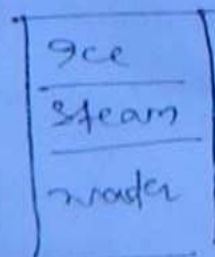 Ice
Steam
water